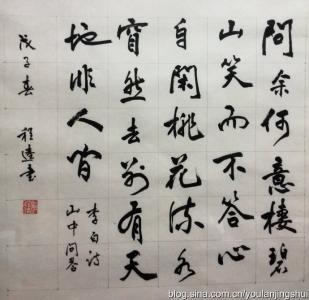 問余何意棲碧
山笑而不答心
自閑桃花流水
窅然去別有天
地非人間
李白诗
山中问答
戊子春
程遠書
blog.sina.com.cn/youlanjingshui